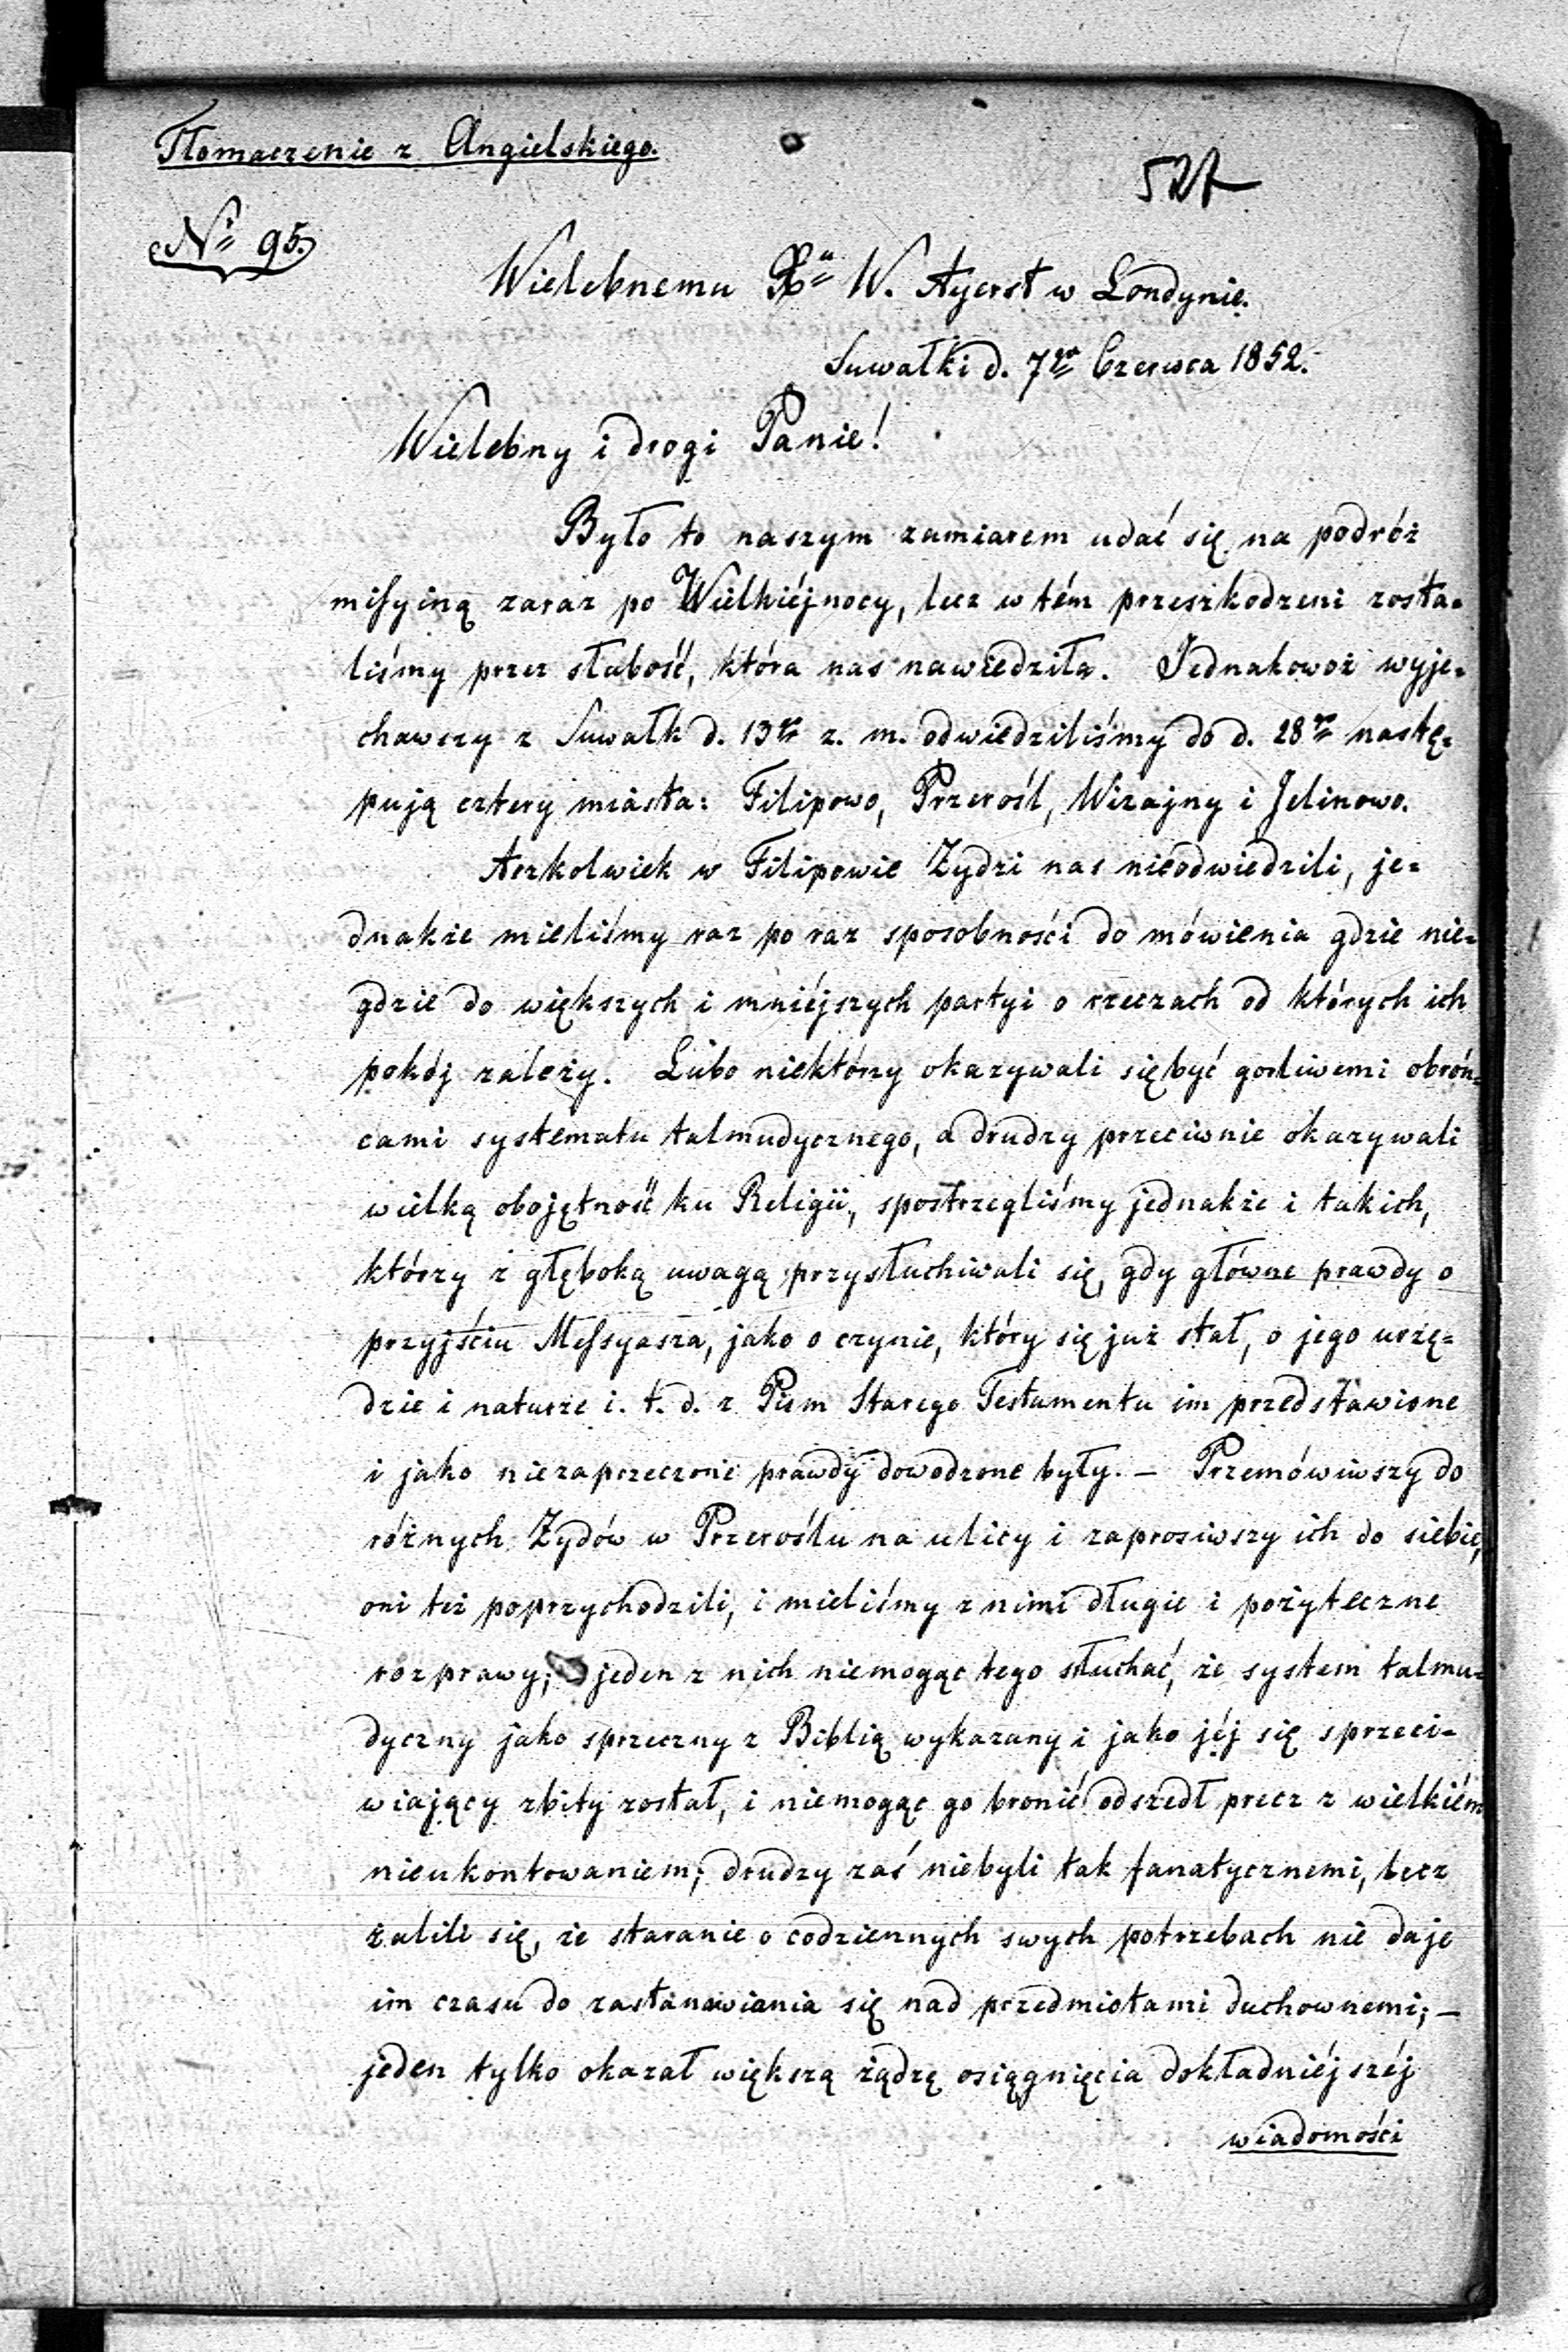 Tłomaczenie z Angielskiego.
527
No 95.
Wielebnemu Xu W. Ayerst w Londynie.
Suwałki d. 7go Czerwca 1852.
Wielebny i drogi Panie!
Było to naszym zamiarem udać się na podróż
missyiną zaraz po Wielkiéjnocy, lecz w tém przeszkodzeni zosta=
liśmy przez słabość, która nas nawiedziła. Jednakowoż wyje=
chawszy z Suwałk d. 13go z. m. odwiedziliśmy do d. 28go nastę=
pują cztery miasta: Filipowo, Przerośl, Wizajny i Jelinowo.
Aczkolwiek w Filipowie Żydzi nas nieodwiedzili, je=
dnakże mieliśmy raz po raz sposobności do mówienia gdzie nie=
gdzie do większych i mniéjszych partyi o rzeczach od których ich
pokój zależy. Lubo niektórzy okazywali się być gorliwemi obroń=
cami systematu talmudycznego, a drudzy przeciwnie okazywali
wielką obojętność ku Religii, spostrzegliśmy jednakże i takich,
którzy z głęboką uwagą przysłuchiwali się, gdy główne prawdy o
przyjściu Messyasza, jako o czynie, który się już stał, o jego urzę=
dzie i naturze i. t. d. z Pism Starego Testamentu im przedstawione
i jako niezaprzeczone prawdy dowodzone były. — Przemówiwszy do
różnych Żydów w Przeroślu na ulicy i zaprosiwszy ich do siebie,
oni też poprzychodzili, i mieliśmy z nimi długie i pożyteczne
rozprawy; jeden z nich niemogąc tego słuchać, że system talmu=
dyczny jako sprzeczny z Biblią wykazany i jako jéj się sprzeci=
wiający zbity został, i niemogąc go bronić odszedł precz z wielkiém
nieukontowaniem; drudzy zaś niebyli tak fanatycznemi, lecz
żalili się, że staranie o codziennych swych potrzebach nie daje
im czasu do zastanawiania się nad przedmiotami duchownemi; —
jeden tylko okazał większą żądzę osiągnięcia dokładniéjszéj
wiadomości